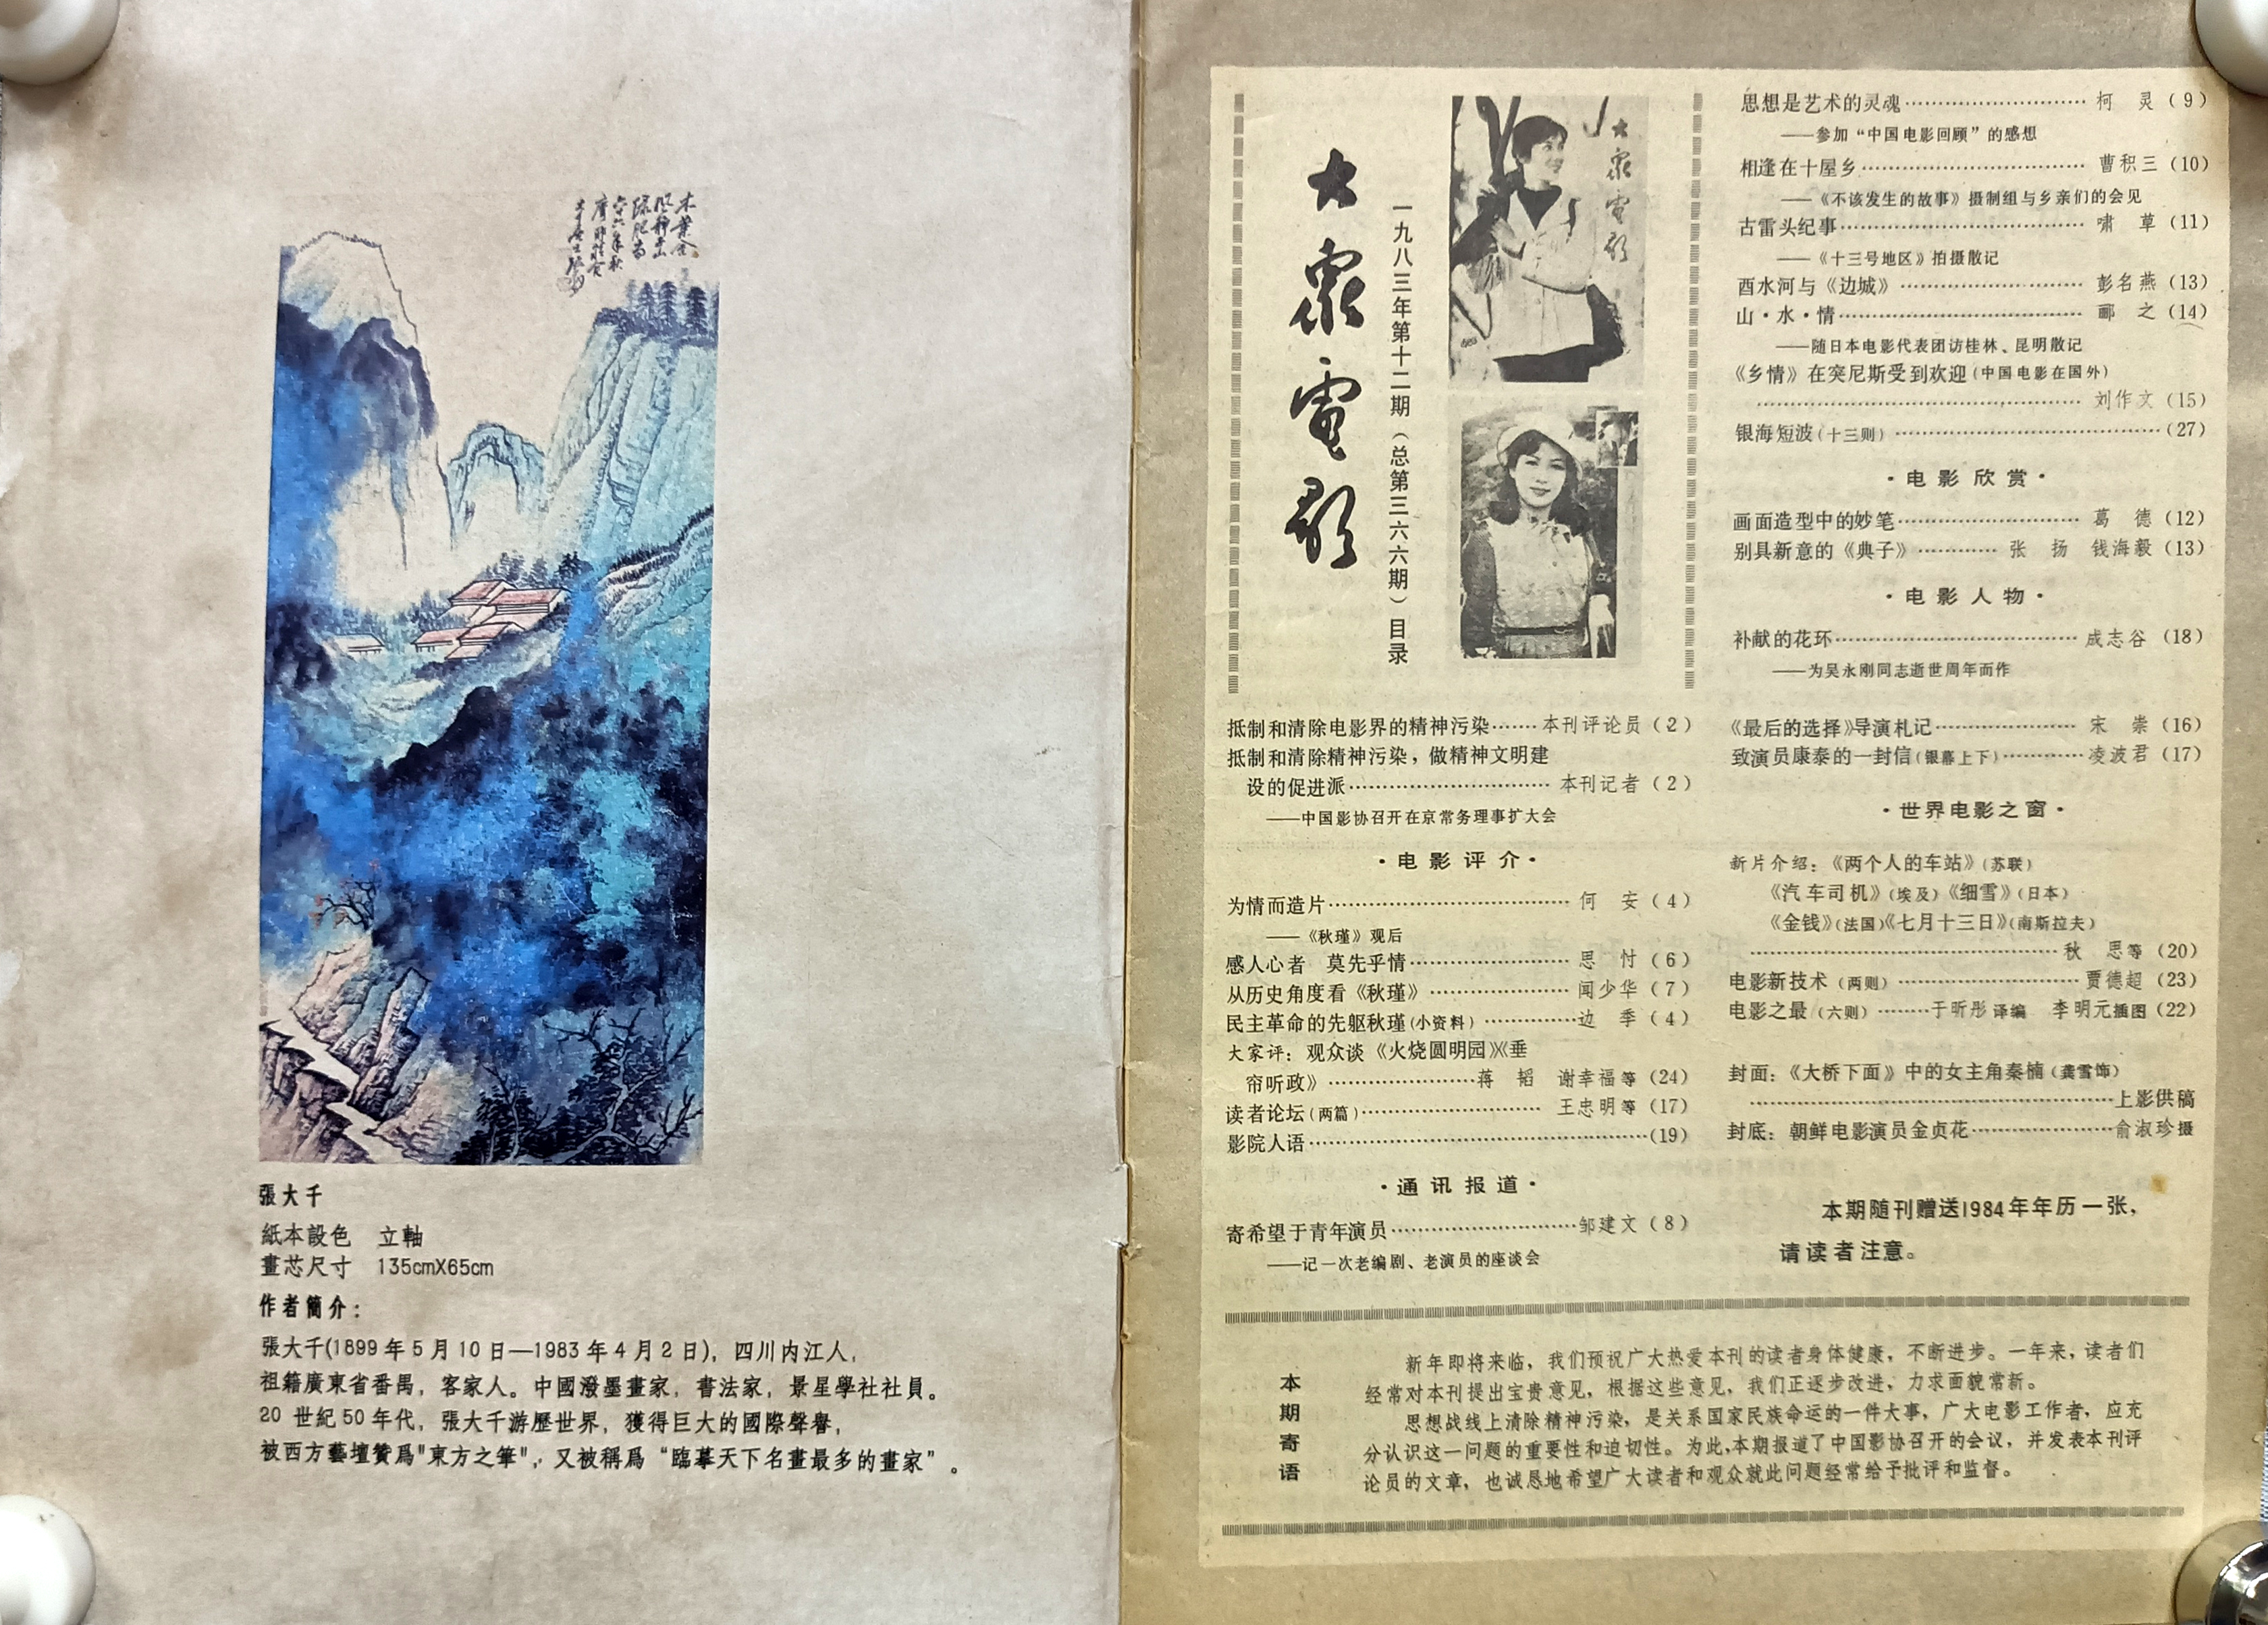 張大千
紙本設色　立軸
畫芯尺寸　135cmX65cm
作者簡介：
張大千(1899年5月10日—1983年4月2日)，四川内江人，
祖籍廣東省番禺，客家人。中國潑墨畫家，書法家，景星學社社員。
20 世紀50年代，張大千游歷世界，獲得巨大的國際聲譽，
被西方藝壇贊爲"東方之筆"，又被稱爲“臨摹天下名畫最多的畫家”。
大眾電影
一九八三年第十二期（总第三六六期）目录
大眾電影
抵制和清除电影界的精神污染……本刊评论员（2）
抵制和清除精神污染，做精神文明建
设的促进派……本刊记者（2）
——中国影协召开在京常务理事扩大会
·电影评介·
为情而造片……何　安（4）
——《秋瑾》观后
感人心者　莫先乎情……思　忖（6）
从历史角度看《秋瑾》……闻少华（7）
民主革命的先躯秋瑾(小资料)……边　季（4）
大家评：观众谈《火烧圆明园》《垂
帘听政》……蒋　韬　谢幸福等（24）
读者论坛(两篇)……王忠明等（17）
影院人语……（19）
·通讯报道·
寄希望于青年演员……邹建文（8）
——记一次老编剧、老演员的座谈会
思想是艺术的灵魂……柯　灵（9）
——参加“中国电影回顾”的感想
相逢在十屋乡……曹积三（10）
——《不该发生的故事》摄制组与乡亲们的会见
古雷头纪事……啸　草（11）
——《十三号地区》拍摄散记
酉水河与《边城》……彭名燕（13）
山·水·情……郦　之（14）
——随日本电影代表团访桂林、昆明散记
《乡情》在突尼斯受到欢迎(中国电影在国外)
……刘作文（15）
银海短波(十三则)……（27）
·电影欣赏·
画面造型中的妙笔……葛　德（12）
别具新意的《典子》……张　扬　钱海毅（13）
·电影人物·
补献的花环……成志谷（18）
——为吴永刚同志逝世周年而作
《最后的选择》导演札记……宋　崇（16）
致演员康泰的一封信(银幕上下)……凌波君（17）
·世界电影之窗·
新片介绍：《两个人的车站》(苏联)
《汽车司机》(埃及)《细雪》(日本)
《金钱》(法国)《七月十三日》(南斯拉夫)
……秋　思等（20）
电影新技术(两则)……贾德超（23）
电影之最(六则)……于昕彤译编　李明元插图（22）
封面：《大桥下面》中的女主角秦楠(龚雪饰)
……上影供稿
封底：朝鲜电影演员金贞花……俞淑珍摄
本期随刊赠送1984年年历一张，
请读者注意。
本期寄语
新年即将来临，我们预祝广大热爱本刊的读者身体健康，不断进步。一年来，读者们
经常对本刊提出宝贵意见，根据这些意见，我们正逐步改进，力求面貌常新。
思想战线上清除精神污染，是关系国家民族命运的一件大事，广大电影工作者，应充
分认识这一问题的重要性和迫切性。为此，本期报道了中国影协召开的会议，并发表本刊评
论员的文章，也诚恳地希望广大读者和观众就此问题经常给予批评和监督。